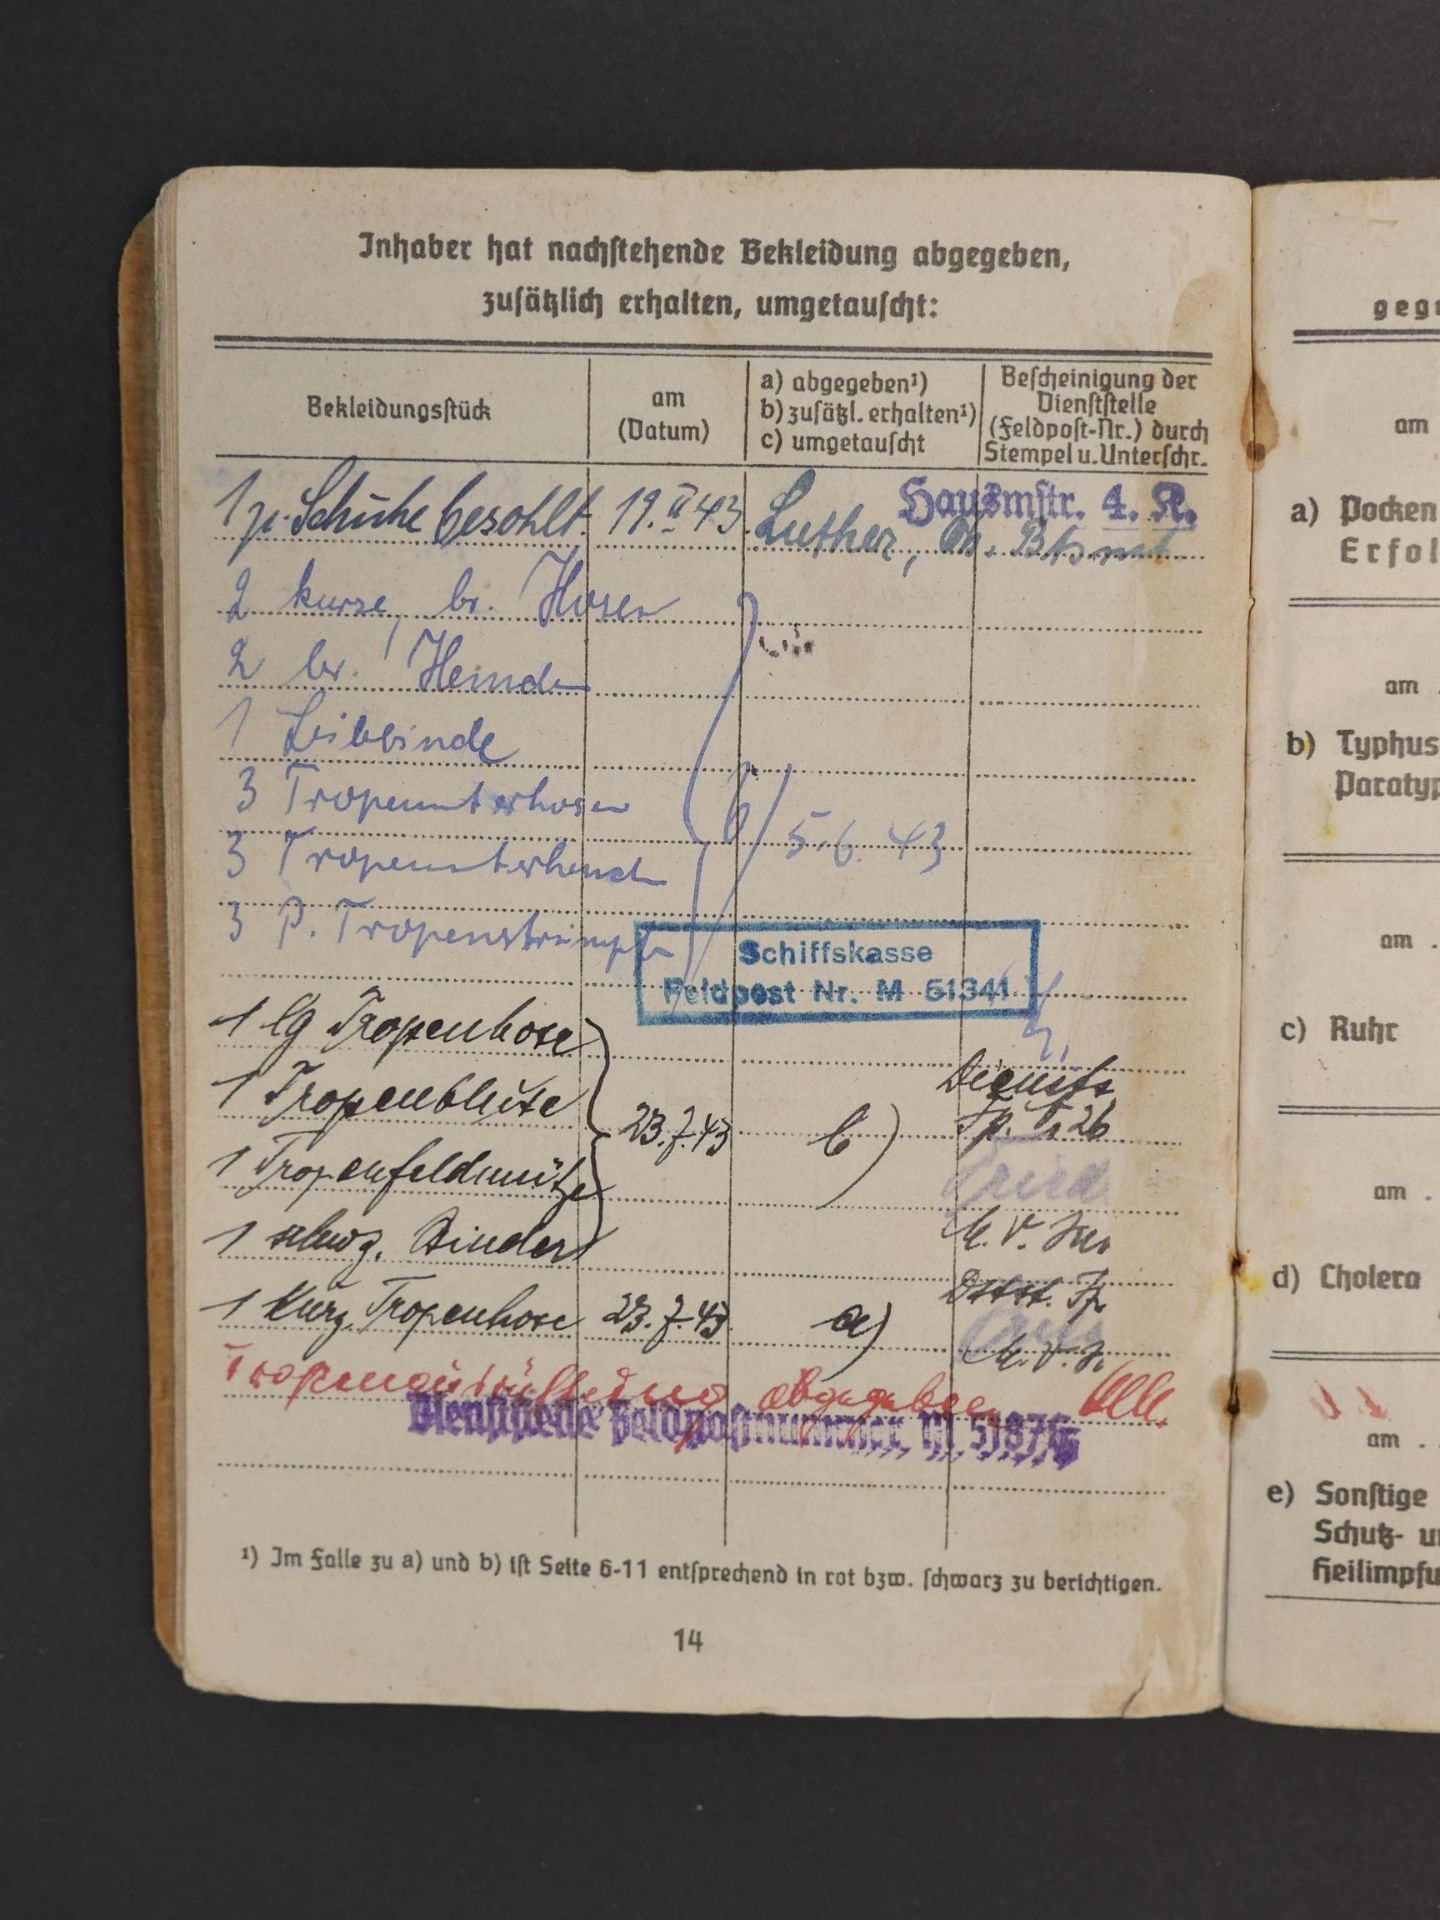 Inhaber hat nachstehende Bekleidung abgegeben,
zusätzlich erhalten, umgetauscht:
Bekleidungsstück
am
(Datum)
a) abgegeben¹)
b) zusätzl. erhalten¹)
c) umgetauscht
Bescheinigung der
Dienststelle
(Feldpost-Nr.) durch
Stempel u. Unterschr.
1 p. Schuhe besohlt. 19.II 43 Luther,
Hauptmstr. 4. K.
2 kurze, br. Hosen
2 br. Hemden
1 Leibbinde
3 Tropenunterhosen
3 Tropenunterhemden
b) 5.6.43
3 P. Tropenstrümpfe
Schiffskasse
Feldpost Nr. M 51341
1 lg Tropenhose
1 Tropenbluse
23.7.43 b)
1 Tropenfeldmütze
1 schwz. Binder
1 kurz. Tropenhose 23.7.43 a)
Tropenausrüstung abgegeben
Dienststelle Feldpostnummer M 51876
¹) Im Falle zu a) und b) ist Seite 6-11 entsprechend in rot bzw. schwarz zu berichtigen.
14
am
a) Pocken
am
b) Typhus
am
c) Ruhr
am
d) Cholera
am
e) Sonstige
Schutz-